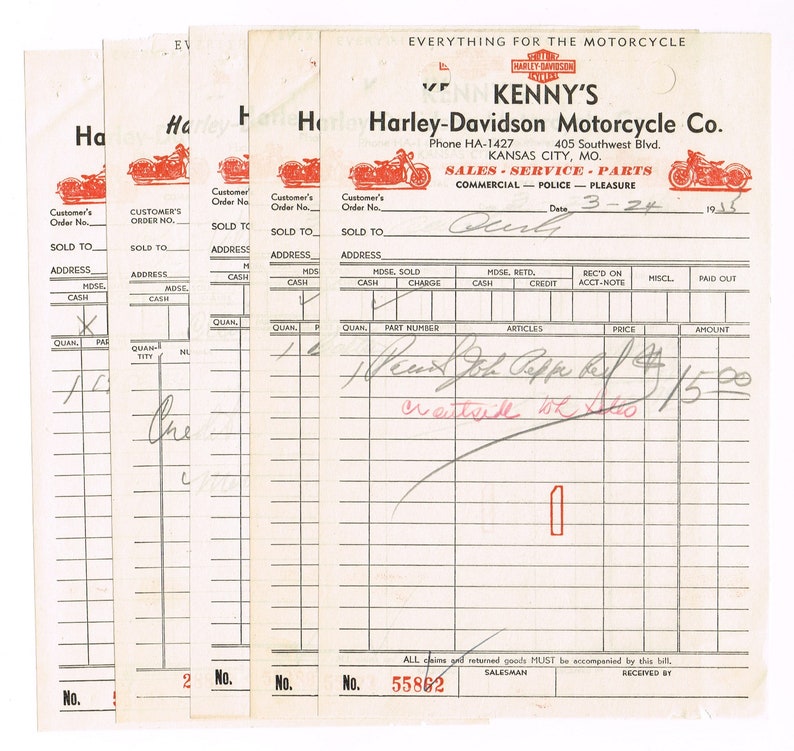 EVERYTHING FOR THE MOTORCYCLE
MOTOR
HARLEY-DAVIDSON
CYCLES
KENNY'S
Harley-Davidson Motorcycle Co.
Phone HA-1427 405 Southwest Blvd.
KANSAS CITY, MO.
SALES - SERVICE - PARTS
COMMERCIAL — POLICE — PLEASURE
Customer's
Order No. Date 3-24 1955
SOLD TO Cash
ADDRESS
MDSE. SOLD MDSE. RETD. REC'D ON ACCT-NOTE MISCL. PAID OUT
CASH CHARGE CASH CREDIT
QUAN. PART NUMBER ARTICLES PRICE AMOUNT
1 Paint Job Pepper Red $15.00
ALL claims and returned goods MUST be accompanied by this bill.
No. 55862 SALESMAN RECEIVED BY
Ha
Customer's
Order No.
SOLD TO
ADDRESS
MDSE.
CASH
QUAN. PAR
1
No. 5
EV
Ha
CUSTOMER'S
ORDER NO.
SOLD TO
ADDRESS
MDSE.
CASH
QUAN-
TITY NU
2
H
Customer's
Order No.
SOLD TO
ADDRESS
MD
CASH
QUAN.
No.
Ha
Customer's
Order No.
SOLD TO
ADDRESS
MDS
CASH
QUAN. P
1
No.